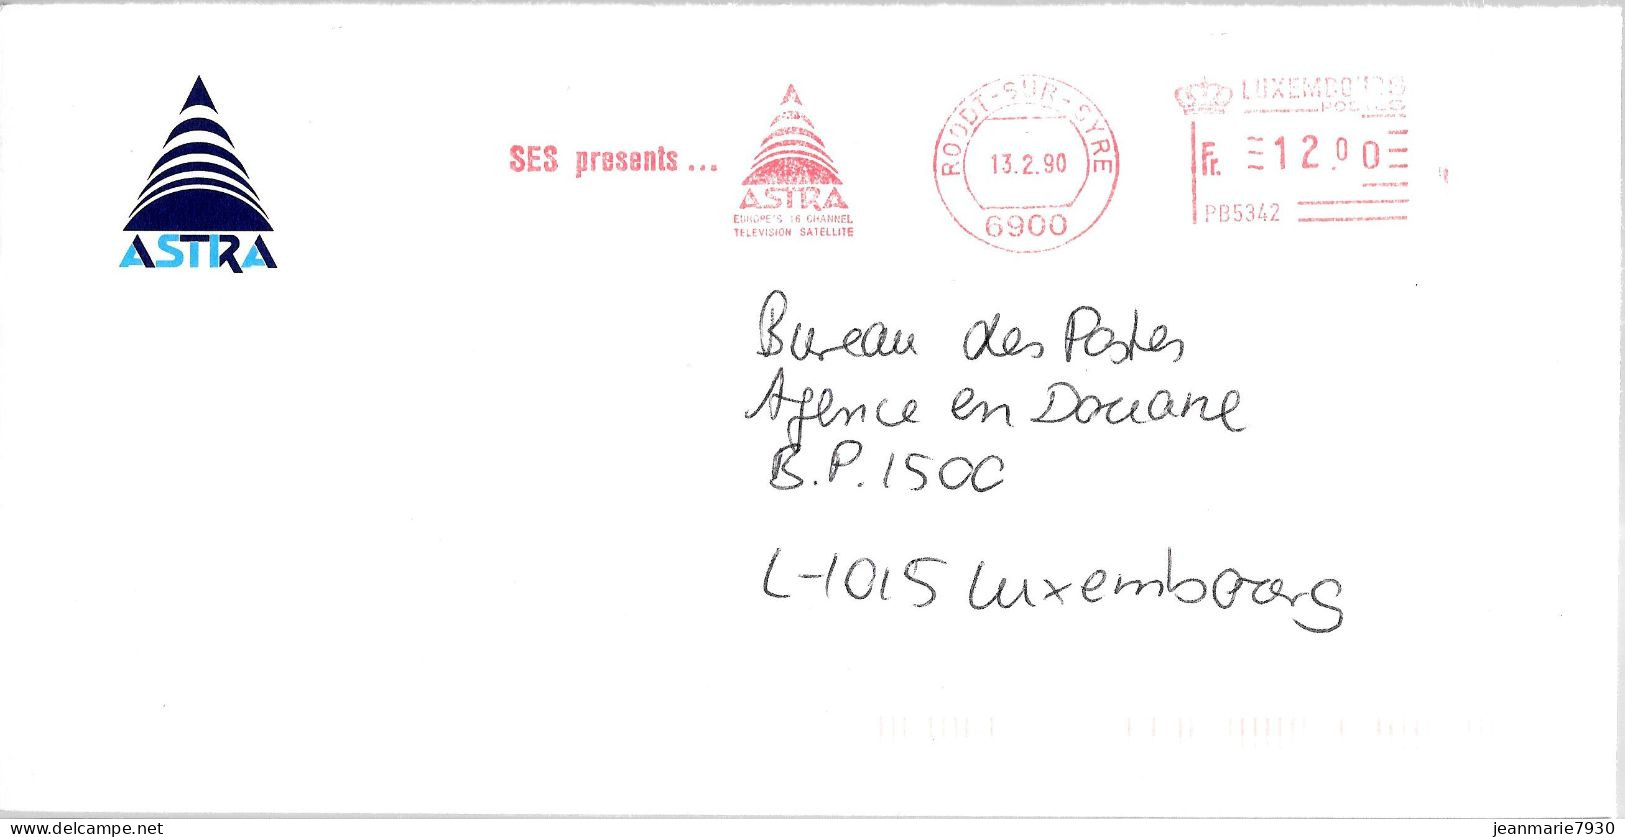 ASTRA
SES presents ...
ASTRA
EUROPE'S 16 CHANNEL
TELEVISION SATELLITE
ROODT-SUR-SYRE
13.2.90
6900
LUXEMBOURG
POSTES
Fr. 12.00
PB5342
Bureau des Postes
Agence en Douane
B.P. 1500
L-1015 Luxembourg
www.delcampe.net
jeanmarie7930